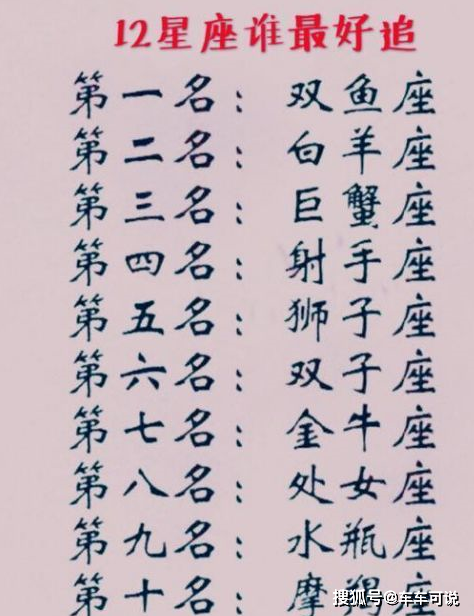 12星座谁最好追
第一名： 双鱼座
第二名： 白羊座
第三名： 巨蟹座
第四名： 射手座
第五名： 狮子座
第六名： 双子座
第七名： 金牛座
第八名： 处女座
第九名： 水瓶座
第十名： 摩羯座
搜狐号@车车可说